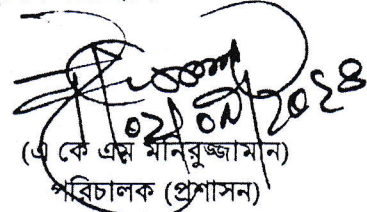 ০২/০৯/২০২৪
(এ কে এম মনিরুজ্জামান)
পরিচালক (প্রশাসন)